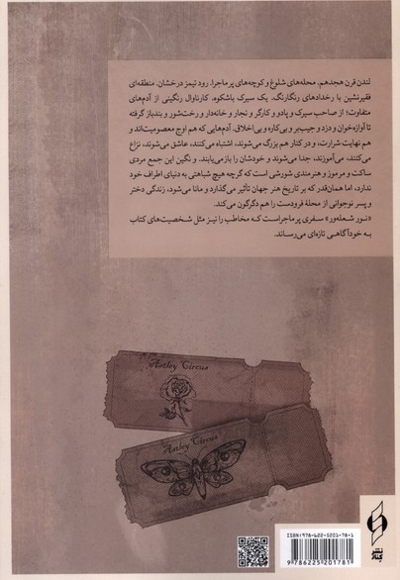 لندن قرن هجدهم. محله‌های شلوغ و کوچه‌های پر ماجرا. رود تیمز درخشان. منطقه‌ای
فقیرنشین با رخدادهای رنگارنگ. یک سیرک باشکوه. کارناوال رنگینی از آدم‌های
متفاوت؛ از صاحب سیرک و پادو و کارگر و نجار و خانه‌دار و رخت‌شور و بندباز گرفته
تا آوازه‌خوان و دزد و جیب‌بر و بی‌کاره و بی‌اخلاق. آدم‌هایی که هم اوج معصومیت‌اند و
هم نهایت شرارت، و در کنار هم بزرگ می‌شوند، اشتباه می‌کنند، عاشق می‌شوند، نزاع
می‌کنند، می‌آموزند، جدا می‌شوند و خودشان را بازمی‌یابند. و نگین این جمع مردی
ساکت و مرموز و هنرمندی شورشی است که گرچه هیچ شباهتی به دنیای اطراف خود
ندارد، اما همان‌قدر که بر تاریخ هنر جهان تأثیر می‌گذارد و مانا می‌شود، زندگی دختر
و پسر نوجوانی از محلهٔ فرودست را هم دگرگون می‌کند.
«نور شعله‌ور» سفری پر ماجراست که مخاطب را نیز مثل شخصیت‌های کتاب
به خودآگاهی تازه‌ای می‌رساند.
Astley Circus
Astley Circus
ISBN: 978-622-5201-78-1
9 786225 201781
نشر